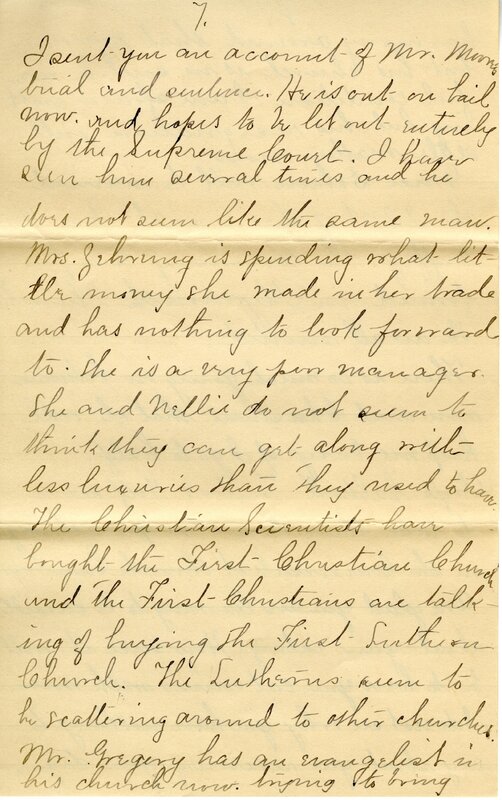 7.
I sent you an account of Mr. Moore
trial and sentence. He is out on bail
now. and hopes to be let out entirely
by the Supreme Court. I have
seen him several times and he
does not seem like the same man.
Mrs. Zehrung is spending what lit-
tle money she made in her trade
and has nothing to look forward
to. She is a very poor manager.
She and Nellie do not seem to
think they can get along with
less luxuries than they used to have.
The Christian Scientists have
bought the First Christian Church
and the First Christians are talk-
ing of buying the First Lutheran
Church. The Lutherns seem to
be scattering around to other churches.
Mr. Gregery has an evangelist in
his church now. trying to bring